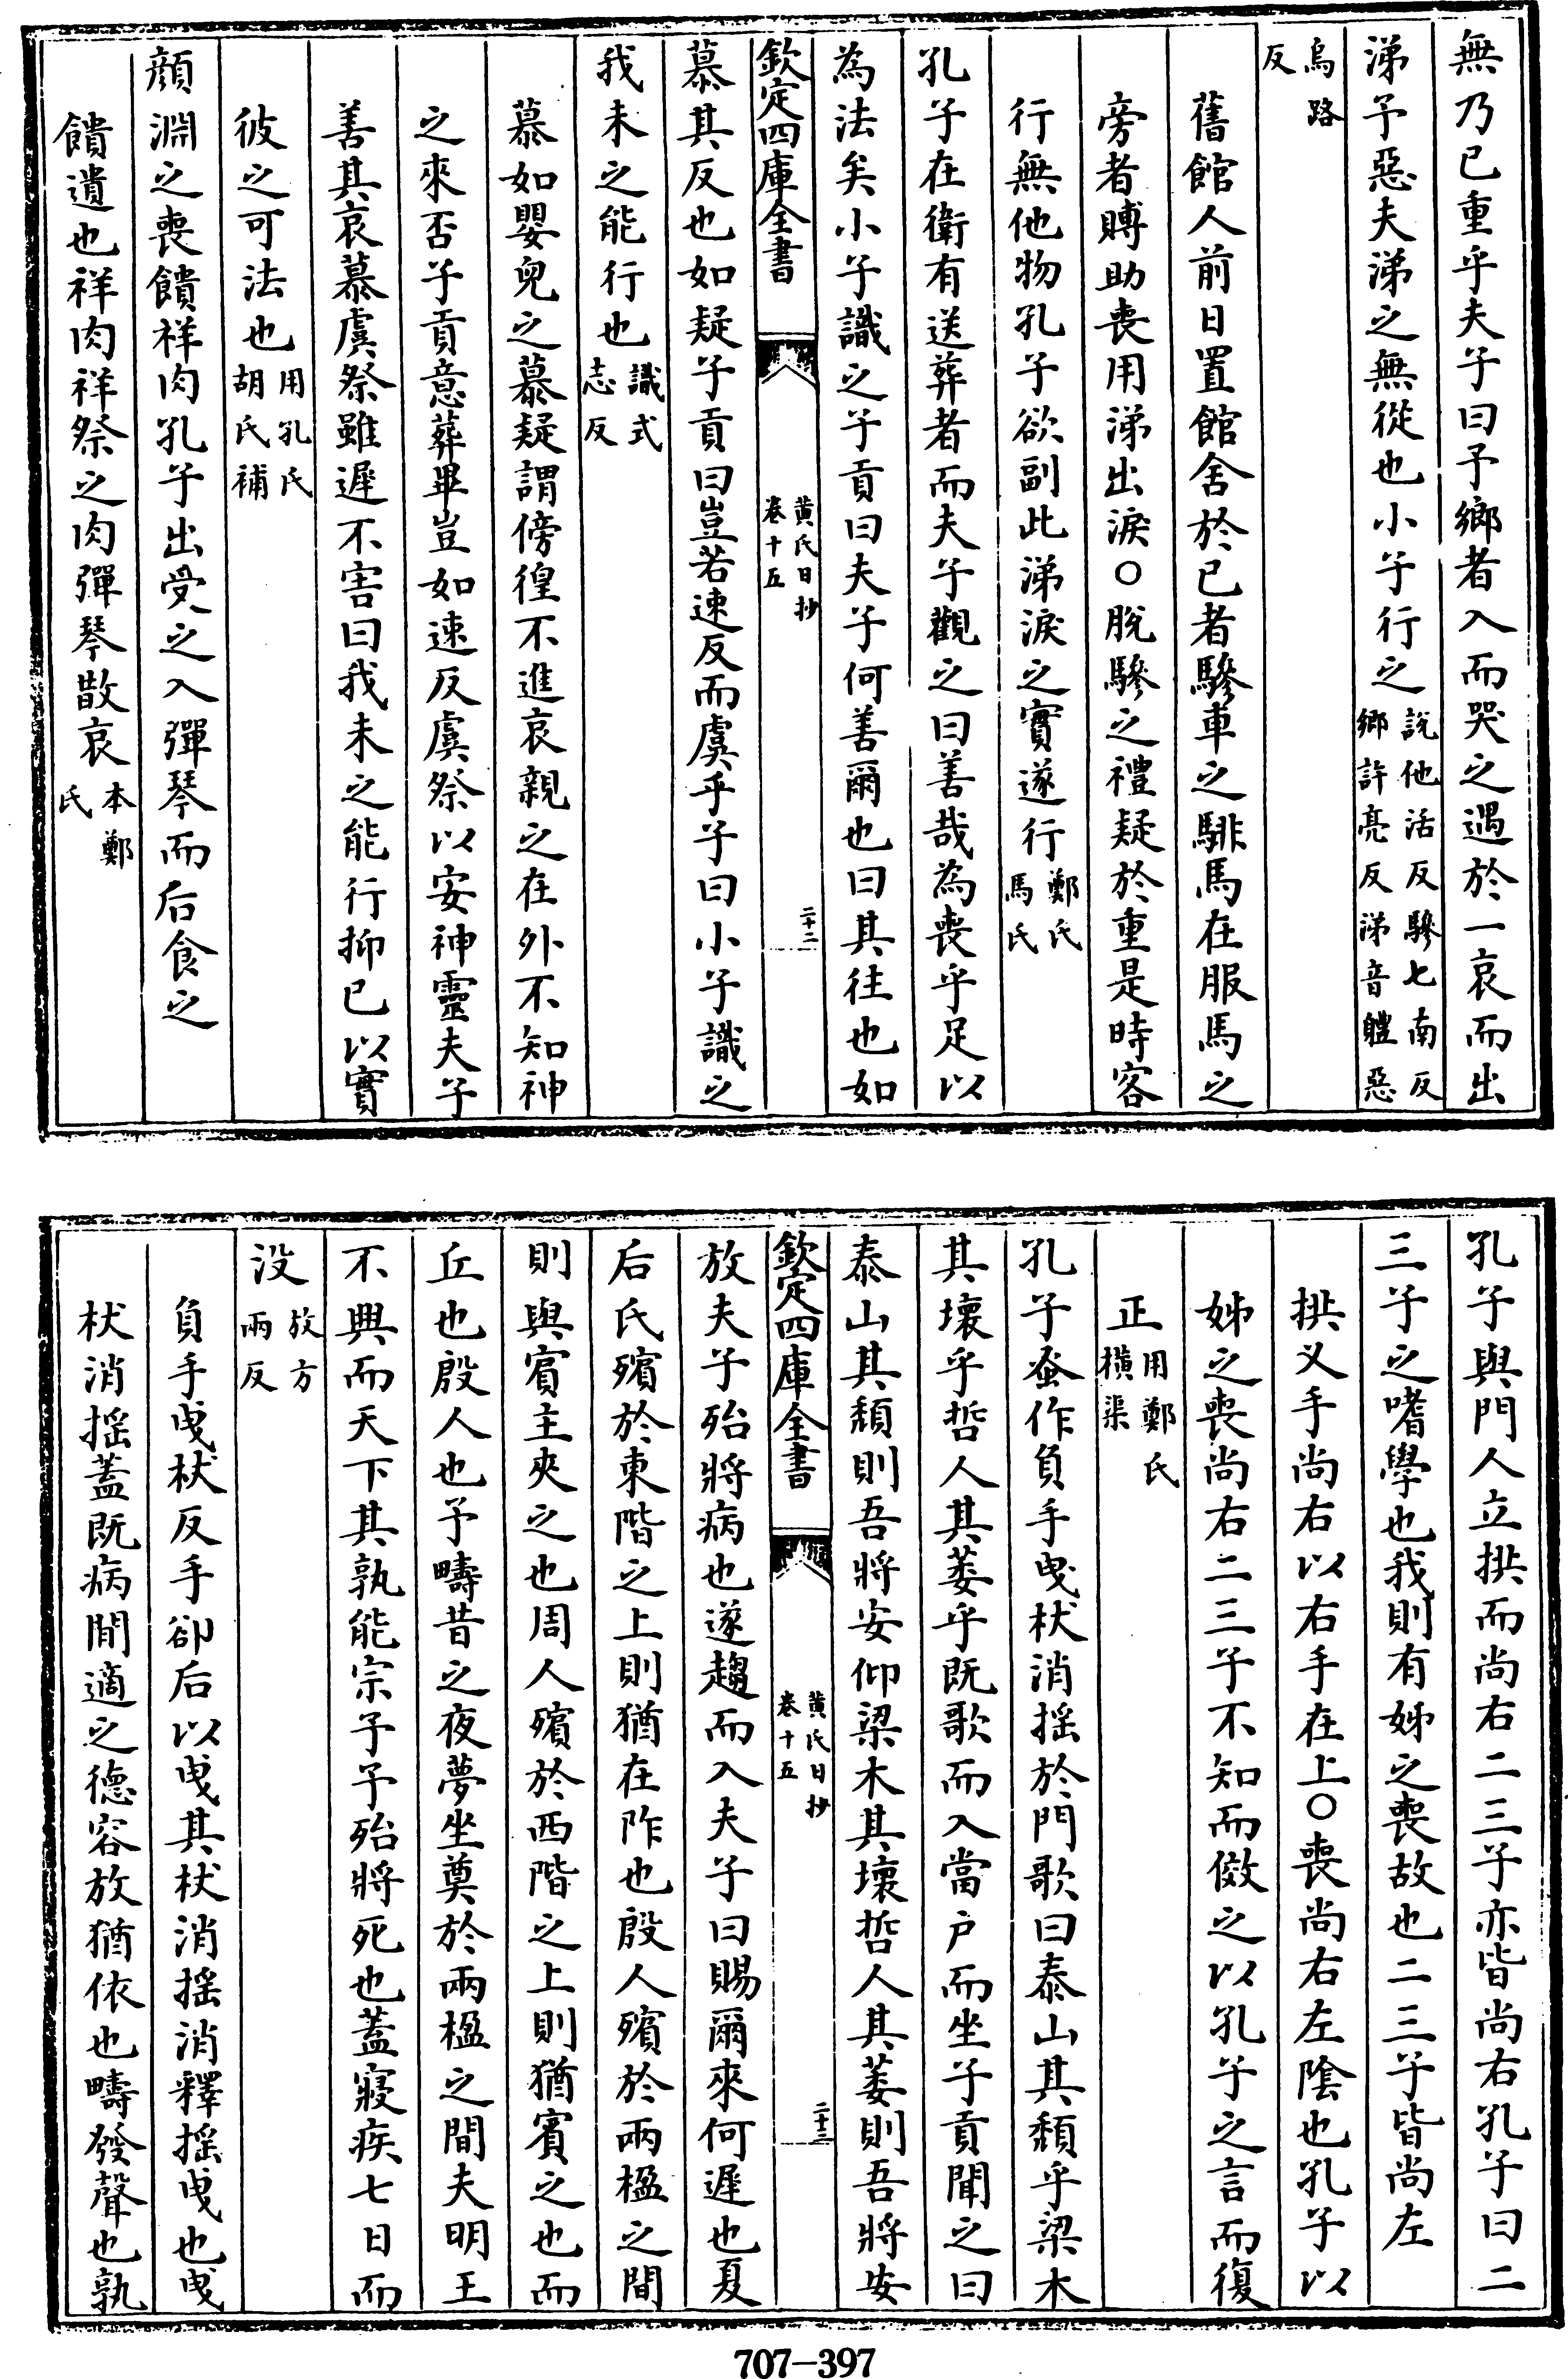 無乃已重乎夫子曰予鄉者入而哭之遇於一哀而出
涕予惡夫涕之無從也小子行之說他活反驂七南反鄉許亮反涕音體惡
烏路反
舊館人前日置館舍於已者驂車之騑馬在服馬之
旁者賻助喪用涕出淚〇脫驂之禮疑於重是時客
行無他物孔子欲副此涕淚之實遂行鄭氏馬氏
孔子在衛有送葬者而夫子觀之曰善哉為喪乎足以
為法矣小子識之子貢曰夫子何善爾也曰其往也如
欽定四庫全書
黄氏日抄
卷十五
二十二
慕其反也如疑子貢曰豈若速反而虞乎子曰小子識之
我未之能行也識式志反
慕如嬰兒之慕疑謂傍徨不進哀親之在外不知神
之來否子貢意葬畢豈如速反虞祭以安神靈夫子
善其哀慕虞祭雖遲不害曰我未之能行抑已以實
彼之可法也用孔氏胡氏補
顔淵之喪饋祥肉孔子出受之入彈琴而后食之
饋遺也祥肉祥祭之肉彈琴散哀本鄭氏
孔子與門人立拱而尚右二三子亦皆尚右孔子曰二
三子之嗜學也我則有姊之喪故也二三子皆尚左
拱乂手尚右以右手在上〇喪尚右左陰也孔子以
姊之喪尚右二三子不知而傚之以孔子之言而復
正用鄭氏橫渠
孔子蚤作負手曳杖消摇於門歌曰泰山其頽乎梁木
其壞乎哲人其萎乎既歌而入當户而坐子貢聞之曰
泰山其頽則吾將安仰梁木其壞哲人其萎則吾將安
欽定四庫全書
黄氏日抄
卷十五
二十三
放夫子殆將病也遂趨而入夫子曰賜爾來何遲也夏
后氏殯於東階之上則猶在阼也殷人殯於兩楹之間
則與賓主夾之也周人殯於西階之上則猶賓之也而
丘也殷人也予疇昔之夜夢坐奠於兩楹之間夫明王
不興而天下其孰能宗予予殆將死也蓋寢疾七日而
没放方兩反
負手曳杖反手卻后以曳其杖消摇消釋摇曳也曳
杖消摇蓋既病閒適之德容放猶依也疇發聲也孰
707-397